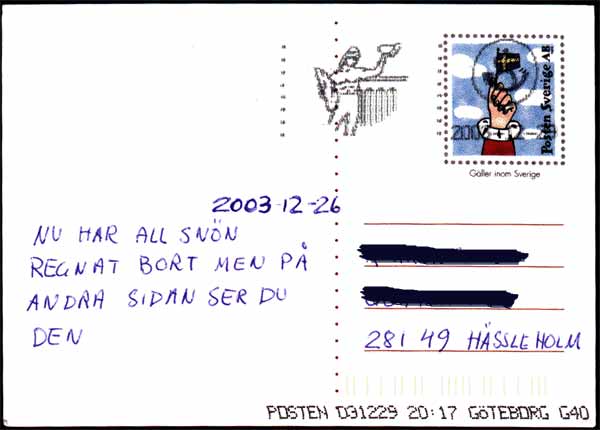 Posten Sverige AB
Gäller inom Sverige
2003-12-26
NU HAR ALL SNÖN
REGNAT BORT MEN PÅ
ANDRA SIDAN SER DU
DEN
281 49 HÄSSLEHOLM
POSTEN 031229 20:17 GÖTEBORG G40